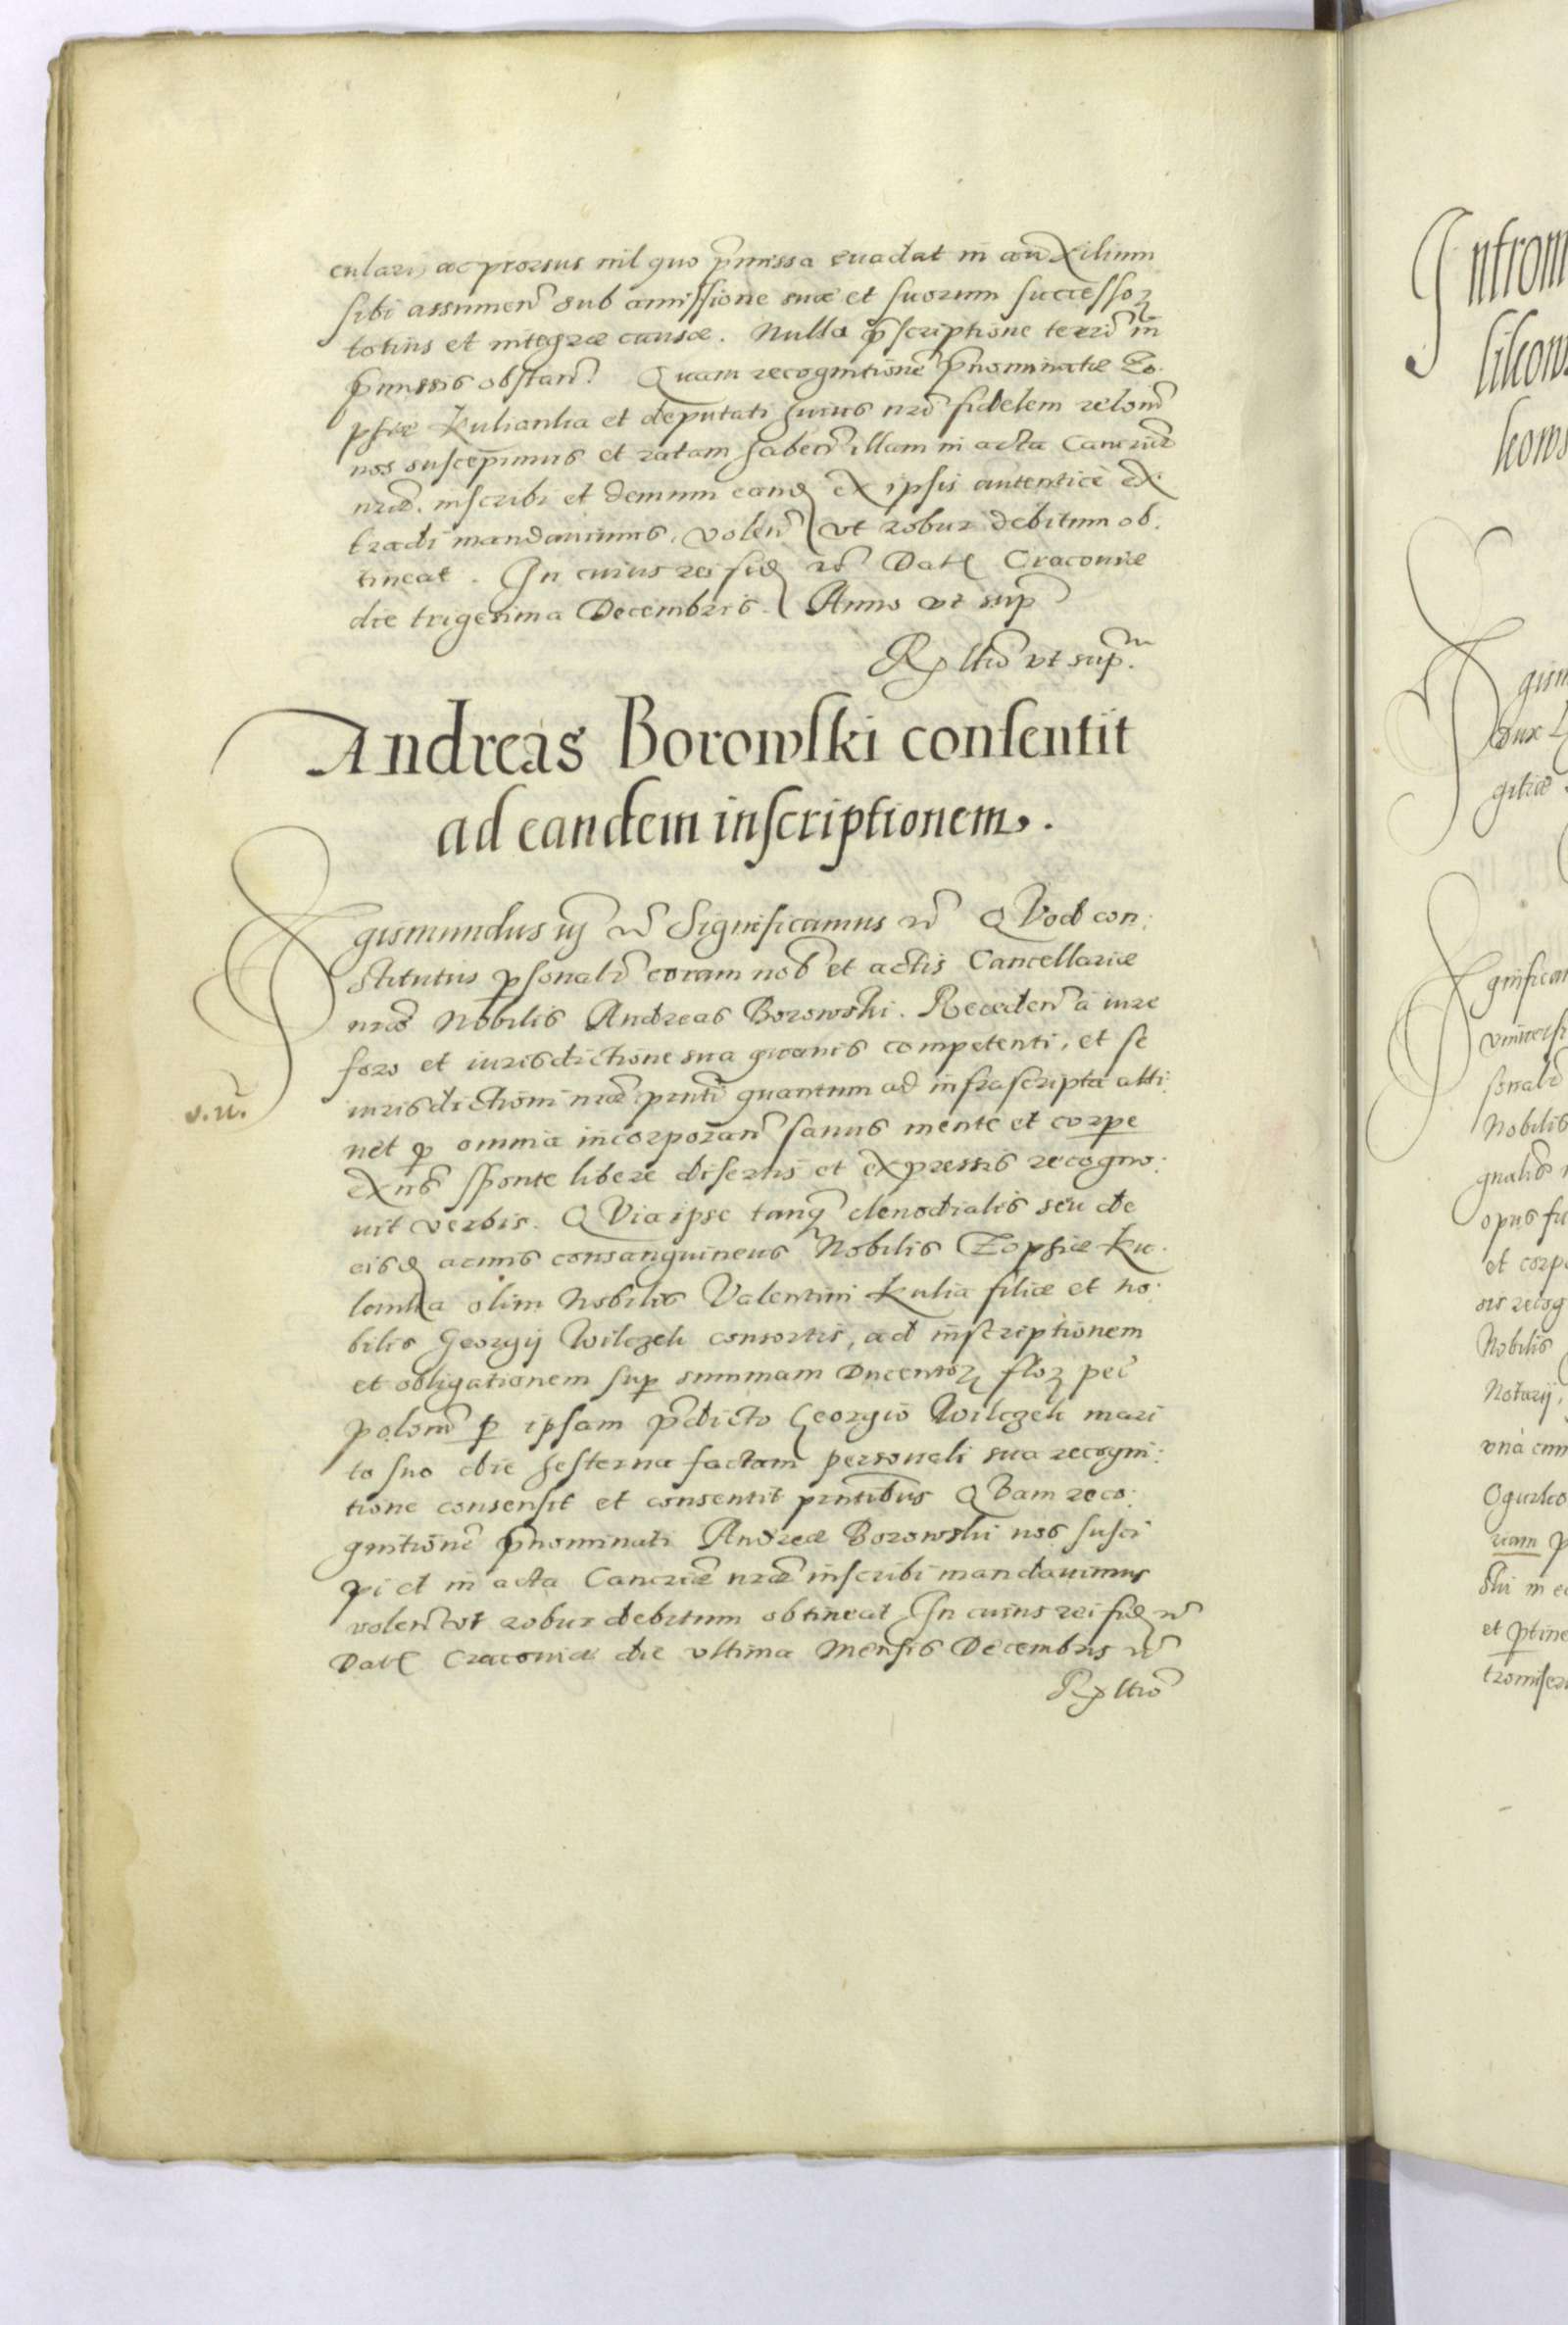 cularj ac prorsus nil quo pmissa euadat in auxilium
sibi assumen sub amissione suæ et suorum successoꝝ
totius et integræ causæ. Nulla pscriptione terrē in
pmissis obstan. Quam recognitionē pnominatæ Zo.
phiæ Kulianka et deputati huius nrī fidelem relonē
nos suscepimus et ratam haben illam in acta Cancriæ
nræ. inscribi et demum eandꝫ ex ipsis autenticè ex.
tradi mandauimus. volen vt robur debitum ob.
tineat. In cuius rei fidꝫ rc̄ Datꝭ Cracouiæ
die trigesima Decembris. Anno vt sup
Rx lłio vt supm.
Andreas Borowski consentit
ad eandem inscriptionem.
Sigismundus iij rc̄ Significamus rc̄ QVod con:
stitutus psonalr coram nob et actis Cancellariæ
nræ Nobilis Andreas Borowski. Receden à iure
foro et iurisdictione sua quauis competenti, et se
iurisdictioni nræ pnti quantum ad infrascripta atti.
net ꝑ omnia incorporan sanus mente et corpe
exns sponte libere disertis et expressis recogno:
uit verbis. QVia ipse tanꝗ clenodialis seu de
eisdꝫ armis consanguineus Nobilis Zophiæ Ku.
loinka olim Nobilis Valentini Kulia filiæ et no:
bilis Georgij Wilczek consortis, ad inscriptionem
et obligationem sup summam Ducentoꝝ floꝝ pec
polonī ꝑ ipsam pdicto Georgio Wilczek mari
to suo die hesterna factam personali sua recogni:
tione consensit et consentit pntibus QVam reco:
gnitionē pnominati Andreæ Borowski nos susci
pi et in acta Cancriæ nræ inscribi mandauimus
volen vt robur debitum obtineat In cuius rei fidꝫ rc̄
Datꝭ Cracouiæ die vltima Mensis Decembris rc̄
Rx lłio
Introm
likow
kows
gism
Dux L
gitiæ
gnifican
vniuersi
sonalr
Nobilis
gnalis
opus fu
et corp
ois recog
Nobilis
Notarij,
vnà cum
Ogurko
riam p
ski in e
et ptine
tromiser